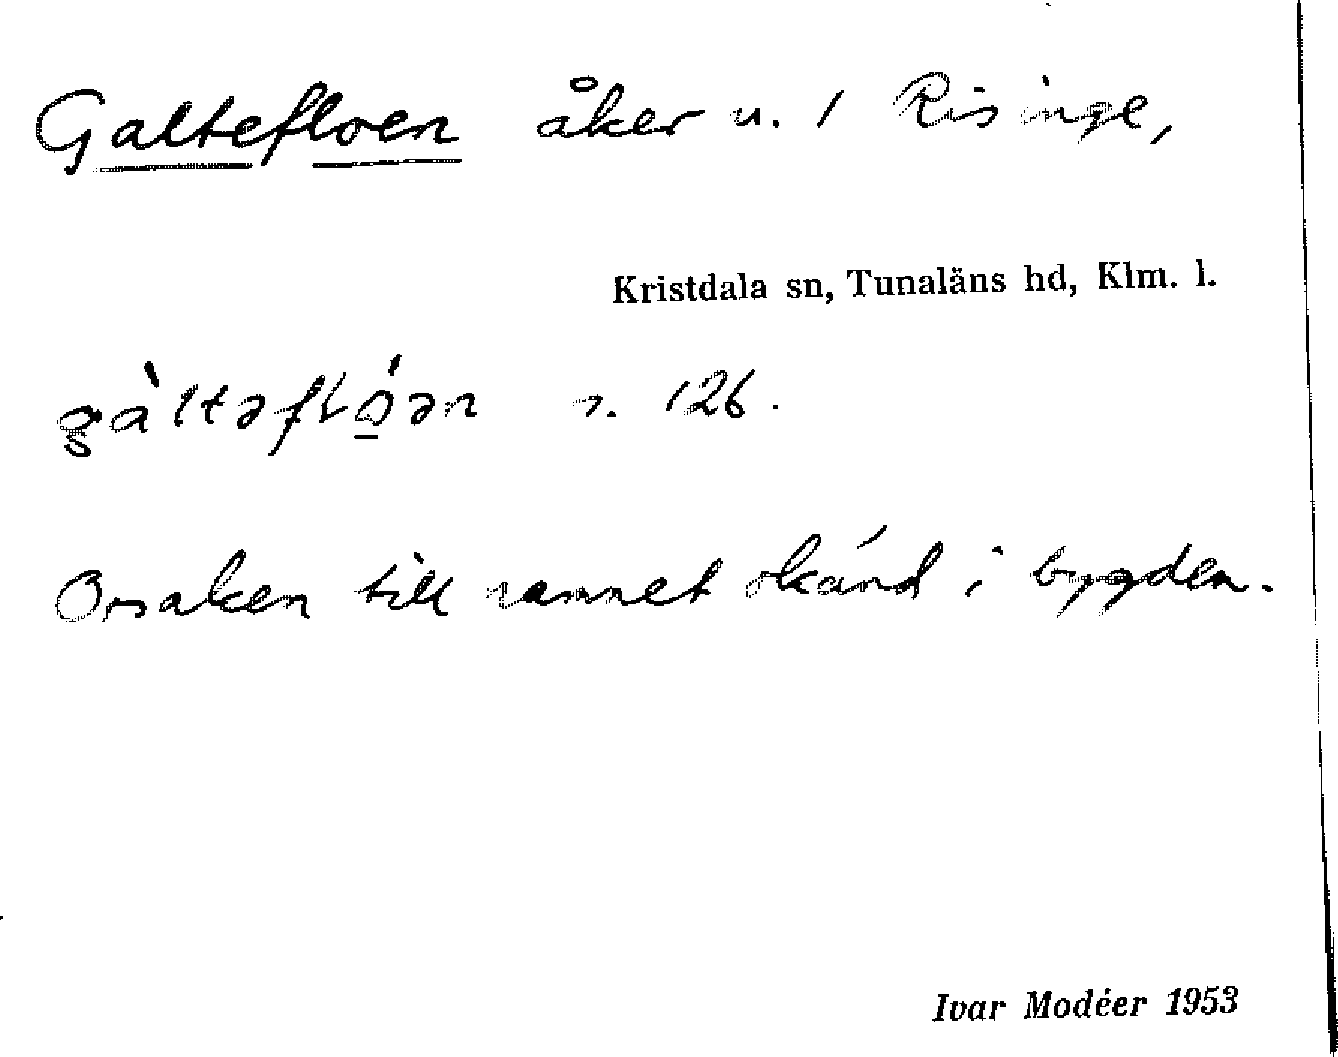 Galtefloen åker u. 1 Risinge,
Kristdala sn, Tunaläns hd, Klm. l.
gàltəfɫó̲ən s. 126.
Orsaken till namnet okänd i bygden.
Ivar Modéer 1953